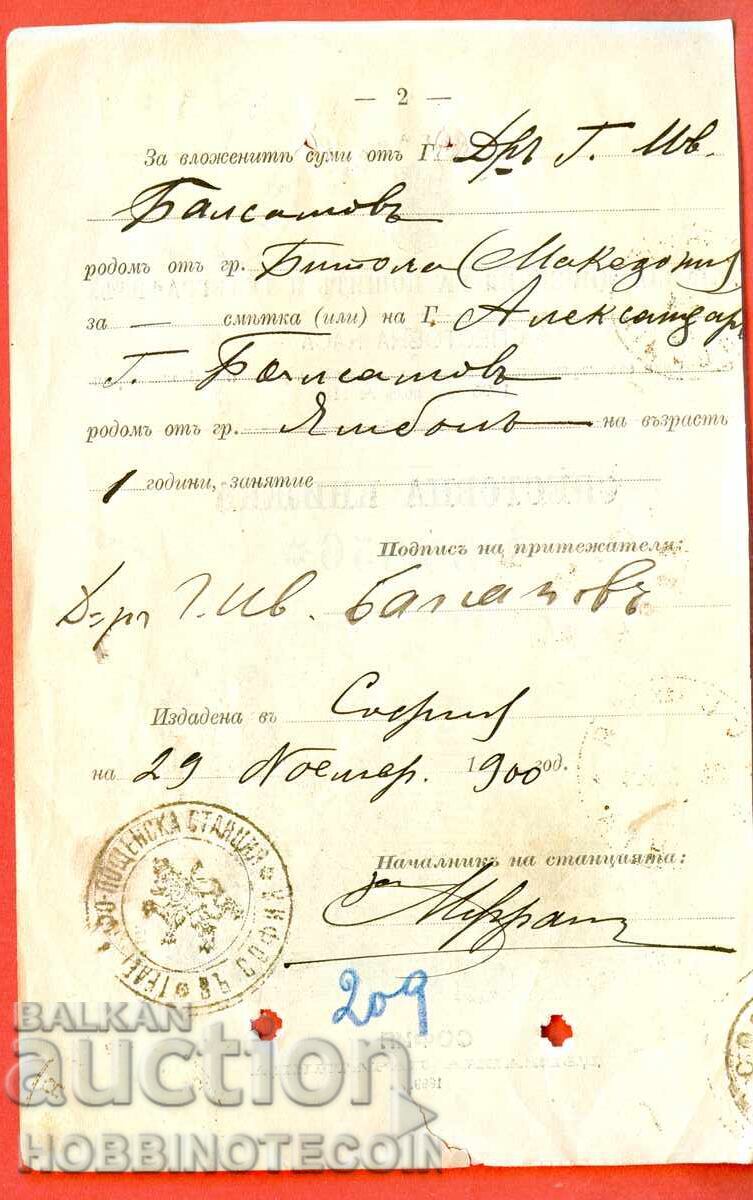 — 2 —
За вложенитѣ суми отъ Г. Д-ръ Г. Ив.
Балсамовъ
родомъ отъ гр. Битоля (Македония)
за — смѣтка (или) на Г. Александъръ
Г. Балсамовъ
родомъ отъ гр. Ямболъ — на възрасть
1 години, занятие
Подписъ на притежателя:
Д-ръ Г. Ив. Балсамовъ
Издадена въ София
на 29 Ноемвр. 1900 год.
Началникъ на станцията:
за
ТЕЛЕГРАФО-ПОЩЕНСКА СТАНЦИЯ
СОФИЯ
209
СОФИЯ
ДЪРЖАВНА ПЕЧАТНИЦА
1899
BALKAN
auction
HOBBINOTECOIN